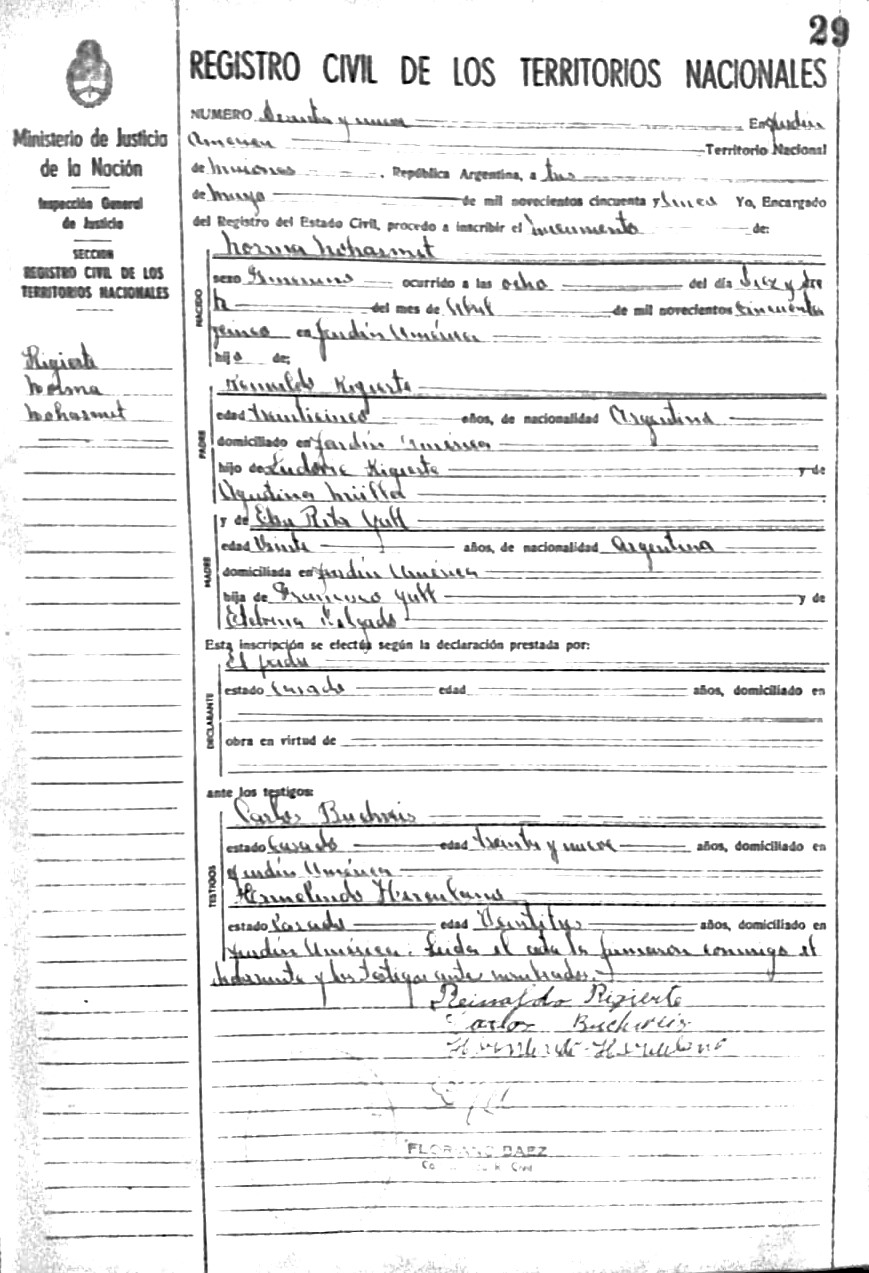 29
REGISTRO CIVIL DE LOS TERRITORIOS NACIONALES
Ministerio de Justicia
de la Nación
Inspección General
de Justicia
SECCION
REGISTRO CIVIL DE LOS
TERRITORIOS NACIONALES
Rigierte
Norma
NUMERO y nueve En Jardín
América Territorio Nacional
de Misiones, República Argentina, a tres
de mayo de mil novecientos cincuenta y cinco Yo, Encargado
del Registro del Estado Civil, procedo a inscribir el nacimiento de:
Norma
NACIDO
sexo femenino ocurrido a las ocho del día diez y
del mes de Abril de mil novecientos cincuenta
y cinco en Jardín América
hija de:
Rigierte
PADRE
edad veinticinco años, de nacionalidad Argentina
domiciliado en Jardín América
hijo de Rigierte y de
Agustina
y de Rita
MADRE
edad Veinte años, de nacionalidad argentina
domiciliada en Jardín América
hija de Francisco y de
Delgado
Esta inscripción se efectúa según la declaración prestada por:
El padre
DECLARANTE
estado casado edad años, domiciliado en
obra en virtud de
ante los testigos:
Carlos Buchweis
TESTIGOS
estado casado edad treinta y nueve años, domiciliado en
Jardín América
estado casado edad Veintitres años, domiciliado en
Jardín América. Leída el acta la firmaron conmigo el
declarante y los testigos ante nombrados.
Reinaldo Rigierte
Carlos Buchweis
FLORIANO BAEZ